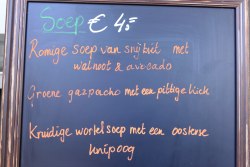 Soep € 4,=
Romige soep van snijbiet met
walnoot & avocado
Groene gazpacho met een pittige kick
Kruidige wortelsoep met een oosterse
knipoog